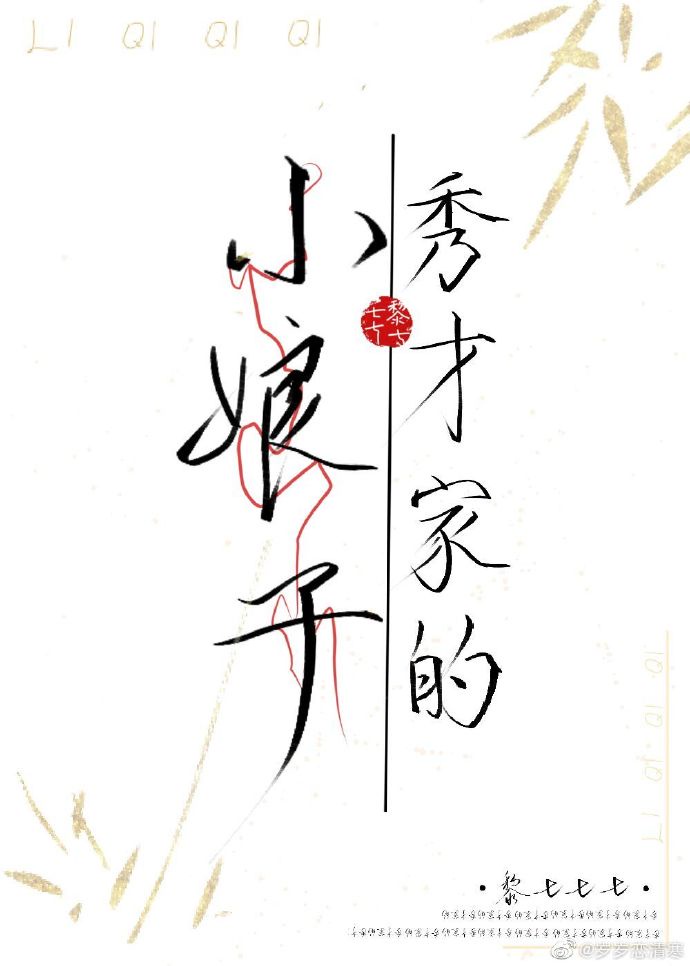 LI QI QI QI
秀才家的
小娘子
黎七七七
LI QI QI QI
·黎七七七·
@罗罗恋清寒